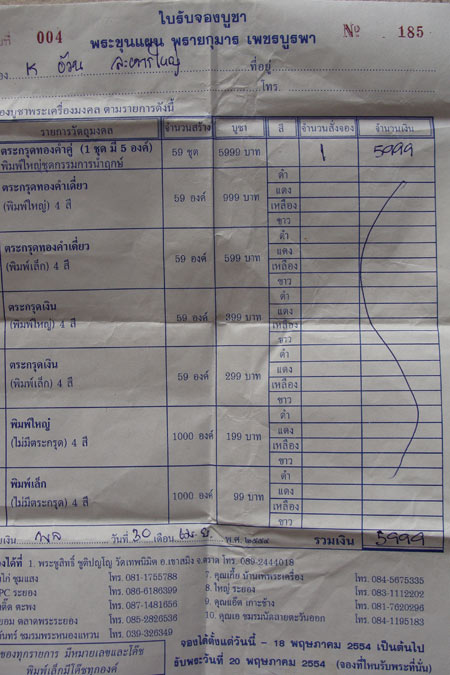 ใบรับจองบูชา
ที่ 004 พระขุนแผน พรายกุมาร เพชรบูรพา Nº 185
ที่อยู่
โทร.
องบูชาพระเครื่องมงคล ตามรายการดังนี้
รายการวัตถุมงคล จำนวนสร้าง บูชา สี จำนวนสั่งจอง จำนวนเงิน
ตระกรุดทองคำคู่ (1 ชุด มี 5 องค์) 59 ชุด 5999 บาท 1 5999
พิมพ์ใหญ่ชุดกรรมการนำฤกษ์
ตระกรุดทองคำเดี่ยว
(พิมพ์ใหญ่) 4 สี 59 องค์ 999 บาท ดำ แดง เหลือง ขาว
ตระกรุดทองคำเดี่ยว
(พิมพ์เล็ก) 4 สี 59 องค์ 599 บาท ดำ แดง เหลือง ขาว
ตระกรุดเงิน
(พิมพ์ใหญ่) 4 สี 59 องค์ 399 บาท ดำ แดง เหลือง ขาว
ตระกรุดเงิน
(พิมพ์เล็ก) 4 สี 59 องค์ 299 บาท ดำ แดง เหลือง ขาว
พิมพ์ใหญ่
(ไม่มีตระกรุด) 4 สี 1000 องค์ 199 บาท ดำ แดง เหลือง ขาว
พิมพ์เล็ก
(ไม่มีตระกรุด) 4 สี 1000 องค์ 99 บาท ดำ แดง เหลือง ขาว
วันที่ 30 เดือน เม.ย. พ.ศ. ๒๕๕๔ รวมเงิน 5999
องได้ที่ 1. พระชูสิทธิ์ ชูติปญฺโญ วัดเทพนิมิต อ.เขาสมิง จ.ตราด โทร. 089-2444018
ไก่ ชุมแสง โทร. 081-1755788 7. คุณเกี้ย บ้านเพพระเครื่อง โทร. 084-5675335
PC ระยอง โทร. 086-6186399 8. ใหญ่ ระยอง โทร. 083-1112202
ติ๊ด ตะพง โทร. 087-1481656 9. คุณแอ๊ด เกาะช้าง โทร. 081-7620296
ยอม ตลาดพระระยอง โทร. 085-2826536 10. คุณเอ ชมรมนัดสายตะวันออก โทร. 084-1195183
ันทร์ ชมรมพระหนองแหวน โทร. 039-326349
ของทุกรายการ มีหมายเลขและโค๊ช
พิมพ์เล็กมีโค๊ชทุกองค์
จองได้ตั้งแต่วันนี้ - 18 พฤษภาคม 2554 เป็นต้นไป
รับพระวันที่ 20 พฤษภาคม 2554 (จองที่ไหนรับพระที่นั่น)